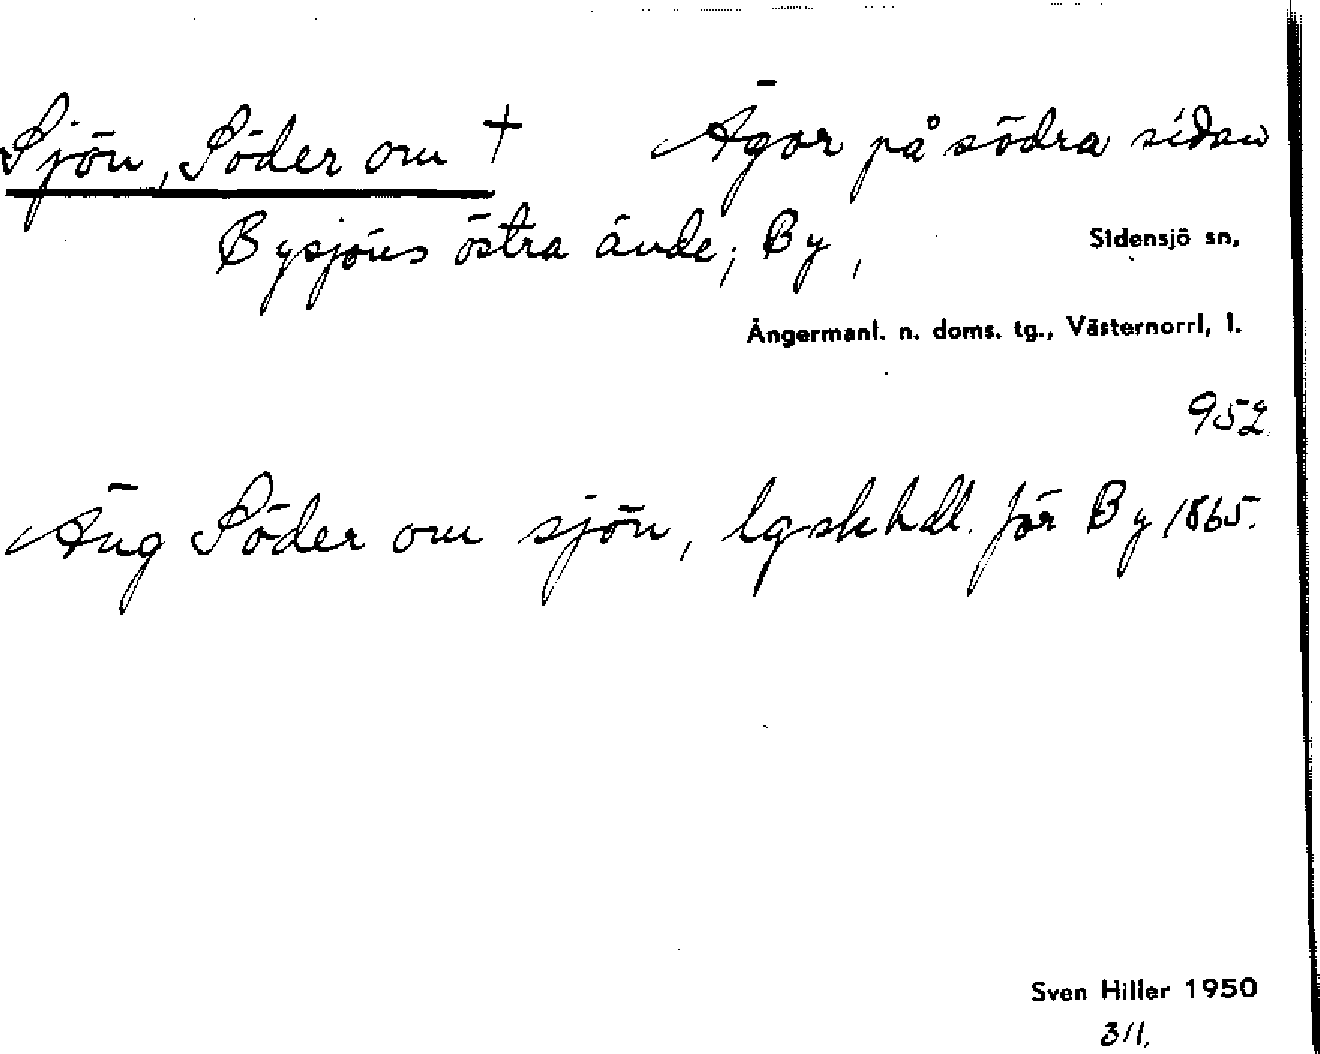 Sjön, Söder om † Ägor på södra sidan
Bysjöns östra ände; By,
Sidensjö sn,
Ångermanl. n. doms. tg., Västernorrl, l.
952
Äng Söder om sjön, lgskhdl. för By 1865.
Sven Hiller 1950
311.